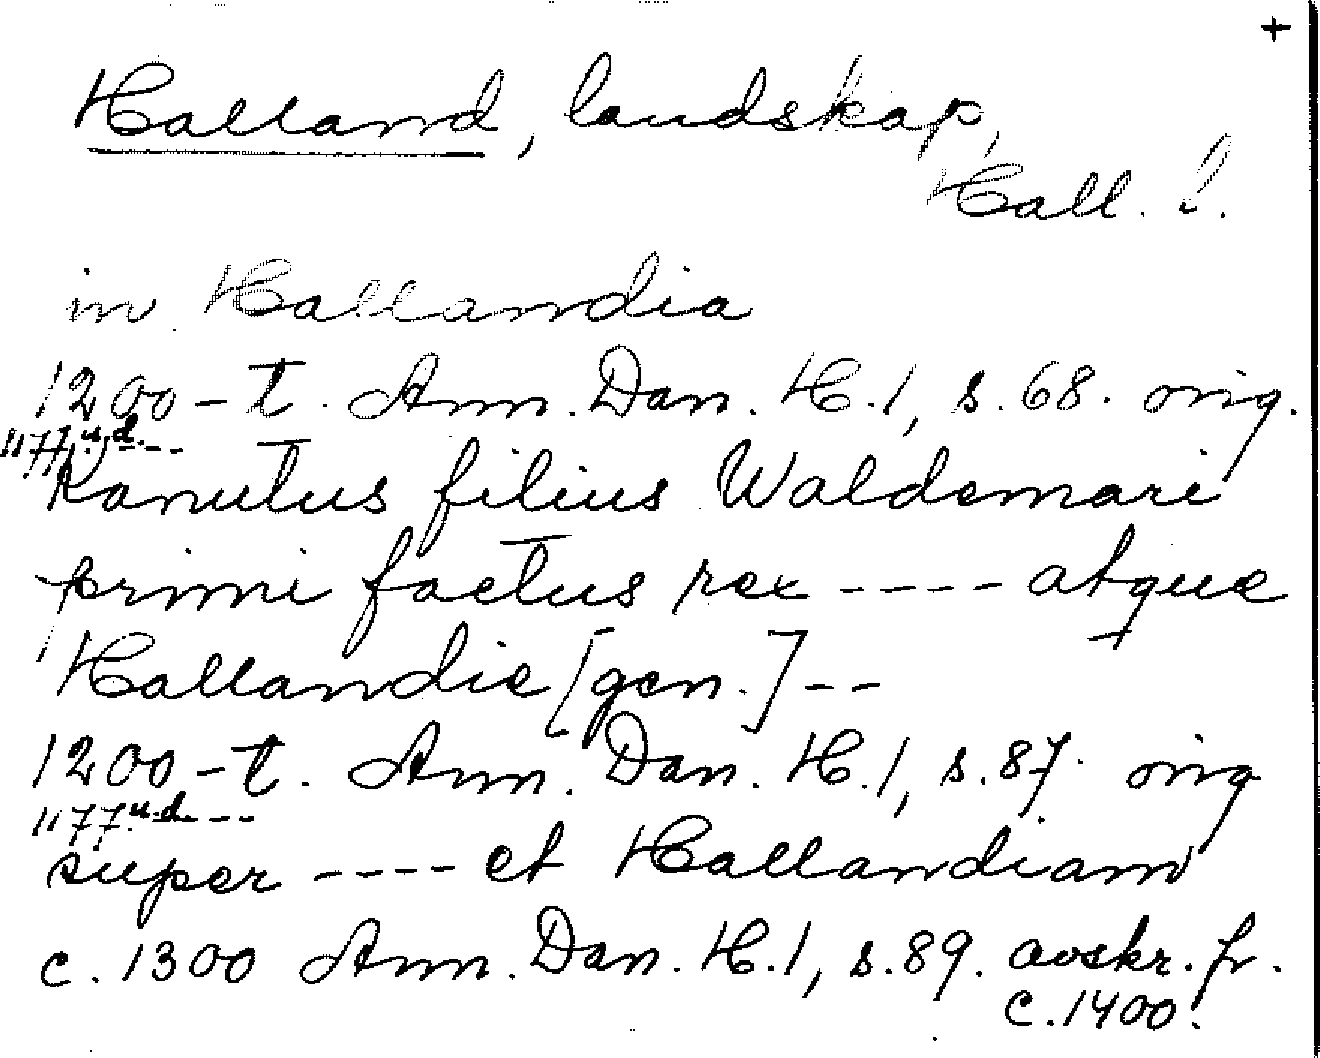 +
Halland, landskap,
Hall. l.
in Hallandia
1200-t. Ann. Dan. H.1, s.68. orig.
1177 u.d. ---
Kanutus filius Waldemari
primi factus rex ---- atque
Hallandie [gen.] --
1200-t. Ann. Dan. H.1, s.87. orig
1177 u.d. ---
super ---- et Hallandiam
c. 1300 Ann. Dan. H.1, s.89. avskr. fr.
c. 1400.